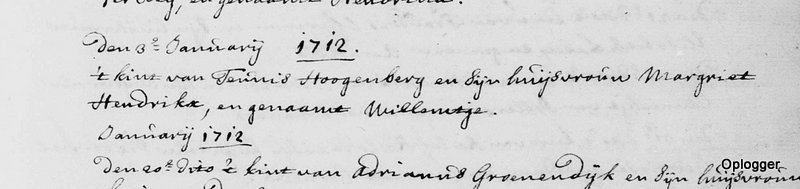 en genaamt Hendrina.
Den 3e Januarij 1712.
't kint van Teunis Hoogenberg en Sijn huijsvrouw Margriet
Hendrikx, en genaamt Willemtje.
Januarij 1712
Den 20e dito 't kint van Adrianus Groenendijk en Sijn huijsvrouw
Oplogger